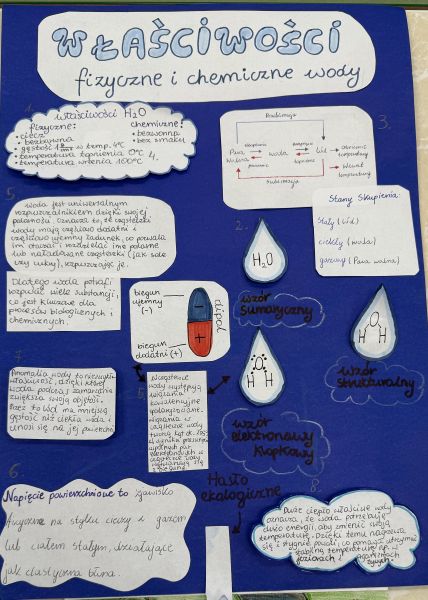 WŁAŚCIWOŚCI
fizyczne i chemiczne wody
1.
właściwości H2O
fizyczne:
chemiczne:
• ciecz
• bezwonna
• bezbarwna
• bez smaku
• gęstość 1 w temp. 4°C
• temperatura topnienia 0°C
4.
• temperatura wrzenia 100°C
3.
Resublimacja
Para
Wodna
woda
Lód
skraplanie
parowanie
krzepnięcie
topnienie
temperatury
Wzrost
temperatury
Sublimacja
Stany Skupienia:
Stały (Lód)
ciekły (woda)
gazowy (Para wodna)
5.
woda jest uniwersalnym
rozpuszczalnikiem dzięki swojej
polarności. Oznacza to, że cząsteczki
wody mają częściowo dodatni i
częściowo ujemny ładunek, co pozwala
im otaczać i rozdzielać inne polarne
lub naładowane cząsteczki (jak sole
czy cukry), rozpuszczając je.
Dlatego woda potrafi
rozpuścić wiele substancji,
co jest kluczowe dla
procesów biologicznych i
chemicznych.
2.
H2O
wzór
sumaryczny
biegun
ujemny
(-)
−
+
biegun
dodatni (+)
dipol
H O H
wzór
elektronowy
kropkowy
O
H H
wzór
strukturalny
7.
Anomalia wody to niezwykła
właściwość, dzięki której
woda podczas zamarzania
zwiększa swoją objętość.
lód ma mniejszą
gęstość niż ciekła woda i
unosi się na jej powierzchni
W cząsteczce
wody występują
wiązania
kowalencyjne
spolaryzowane.
Wiązania w
cząsteczce wody
tworzą kąt
6.
Napięcie powierzchniowe to zjawisko
fizyczne na styku cieczy z gazem
lub ciałem stałym, działające
jak elastyczna błona.
Hasło
ekologiczne
8.
Duże ciepło właściwe wody
oznacza, że woda potrzebuje
dużo energii, aby zmienić swoją
temperaturę. Dzięki temu nagrzewa
się i stygnie powoli, co pomaga utrzymać
stabilną temperaturę np. w
jeziorach i organizmach
żywych.